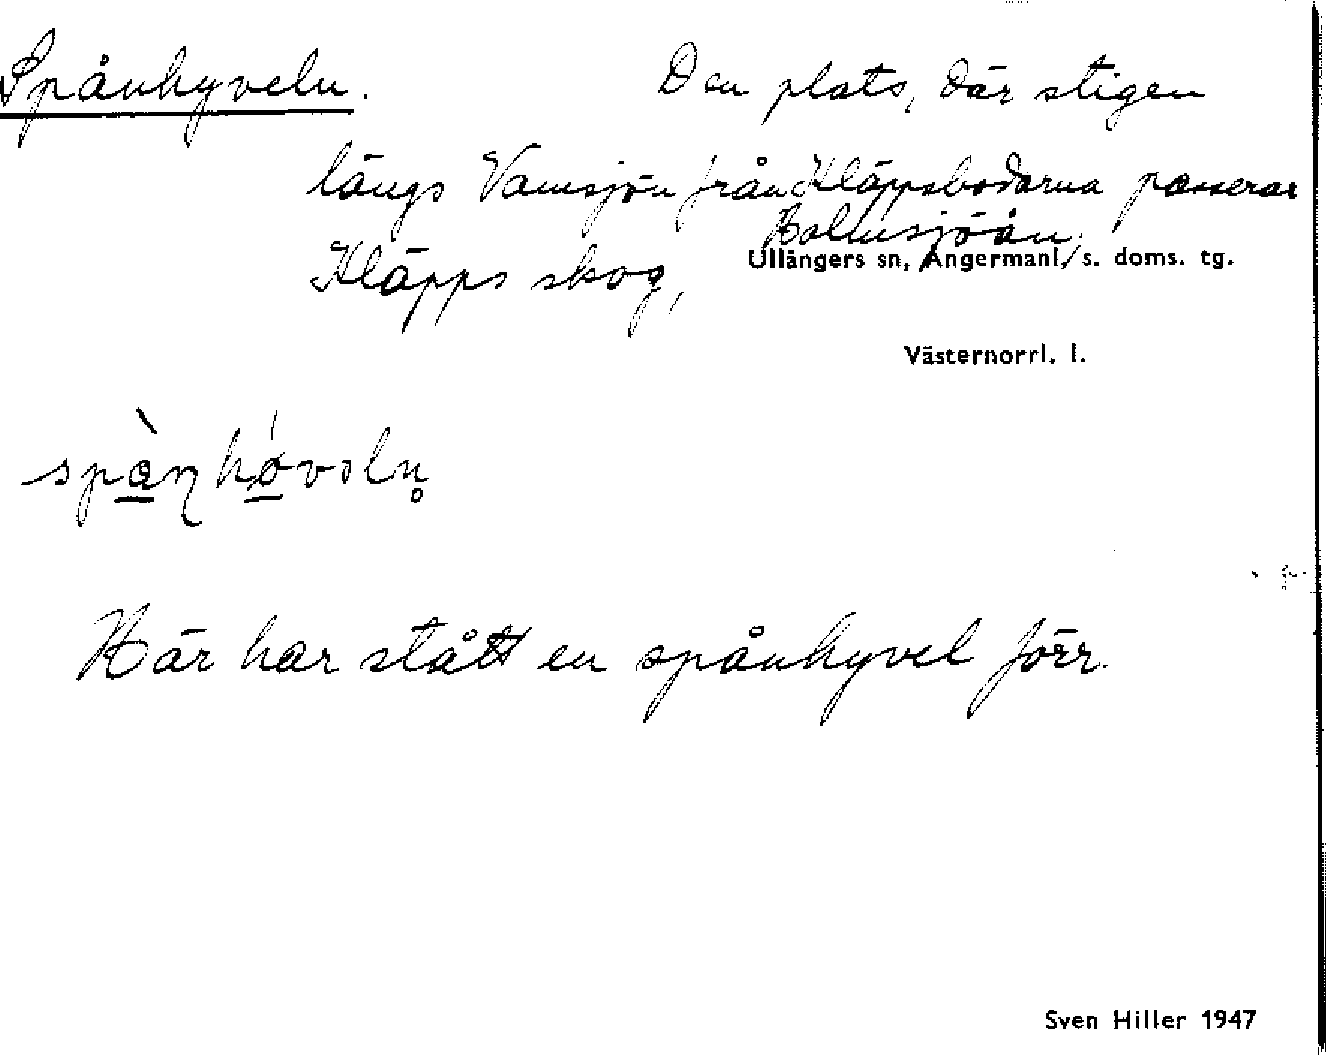 Spånhyveln. Den plats, där stigen
längs Vamsjön från Kläppsbodarna passerar
Hallusjöån.
Kläpps skog,
Ullångers sn, Ångermanl, s. doms. tg.
Västernorrl. l.
Här har stått en spånhyvel förr.
Sven Hiller 1947